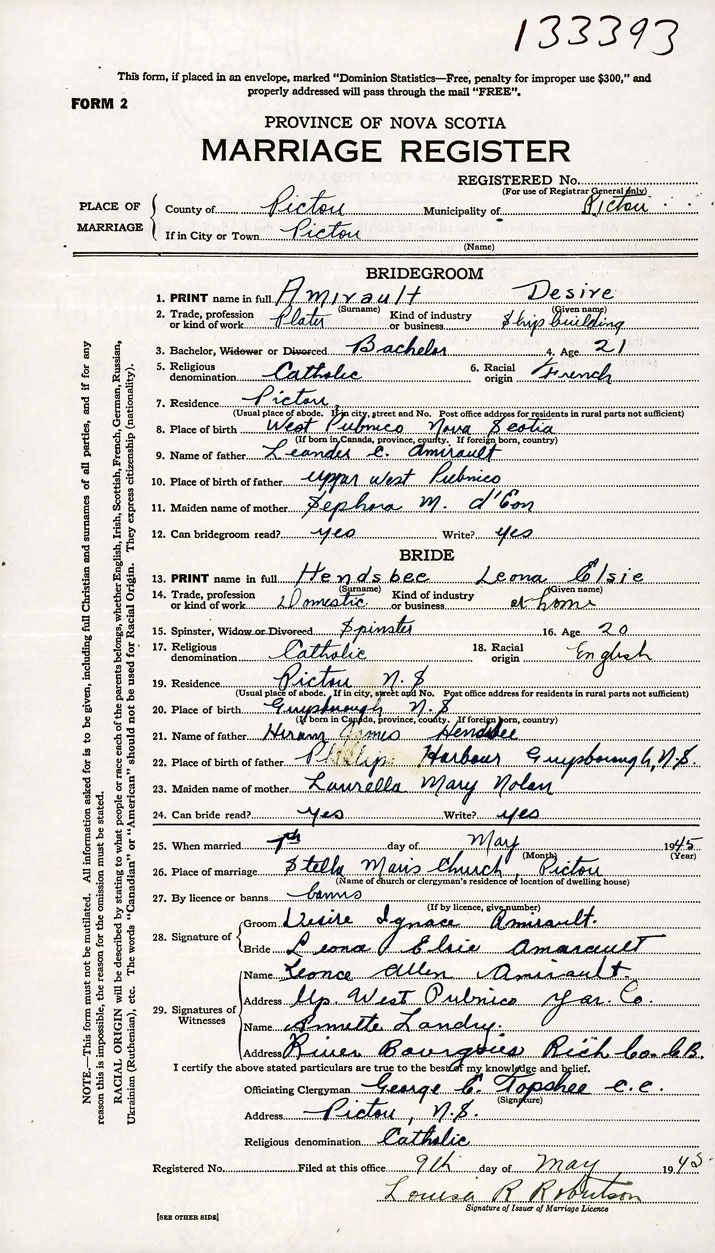 133393
This form, if placed in an envelope, marked "Dominion Statistics—Free, penalty for improper use $300," and
properly addressed will pass through the mail "FREE".
FORM 2
PROVINCE OF NOVA SCOTIA
MARRIAGE REGISTER
REGISTERED No.
(For use of Registrar General only)
PLACE OF MARRIAGE
County of Pictou Municipality of Pictou
If in City or Town Pictou
(Name)
BRIDEGROOM
1. PRINT name in full Amirault Desire
(Surname) (Given name)
2. Trade, profession or kind of work Plater Kind of industry or business Shipbuilding
3. Bachelor, Widower or Divorced Bachelor 4. Age 21
5. Religious denomination Catholic 6. Racial origin French
7. Residence Pictou
(Usual place of abode. If in city, street and No. Post office address for residents in rural parts not sufficient)
8. Place of birth West Pubnico Nova Scotia
(If born in Canada, province, county. If foreign born, country)
9. Name of father Leander C. Amirault
10. Place of birth of father Upper West Pubnico
11. Maiden name of mother Sephora M. d'Eon
12. Can bridegroom read? yes Write? yes
BRIDE
13. PRINT name in full Hendsbee Leona Elsie
(Surname) (Given name)
14. Trade, profession or kind of work Domestic Kind of industry or business at home
15. Spinster, Widow or Divorced Spinster 16. Age 20
17. Religious denomination Catholic 18. Racial origin English
19. Residence Pictou N.S
(Usual place of abode. If in city, street and No. Post office address for residents in rural parts not sufficient)
20. Place of birth Guysborough N.S
(If born in Canada, province, county. If foreign born, country)
21. Name of father Hiram James Hendsbee
22. Place of birth of father Phillips Harbour Guysborough, N.S.
23. Maiden name of mother Laurella Mary Nolan
24. Can bride read? yes Write? yes
25. When married 7th day of May 1945
(Month) (Year)
26. Place of marriage Stella Maris Church, Pictou
(Name of church or clergyman's residence or location of dwelling house)
27. By licence or banns banns
(If by licence, give number)
28. Signature of
Groom Desire Ignace Amirault.
Bride Leona Elsie Amarault
29. Signatures of Witnesses
Name Leonce Allen Amirault.
Address Up. West Pubnico Yar. Co.
Name Annette Landry.
Address River Bourgois Rich Co. C.B.
I certify the above stated particulars are true to the best of my knowledge and belief.
Officiating Clergyman George E. Topshee c.c.
(Signature)
Address Pictou, N.S.
Religious denomination Catholic
Registered No. Filed at this office 9th day of May 1945
Louisa R Robertson
Signature of Issuer of Marriage Licence
[SEE OTHER SIDE]
NOTE.—This form must not be mutilated. All information asked for is to be given, including full Christian and surnames of all parties, and if for any
reason this is impossible, the reason for the omission must be stated.
RACIAL ORIGIN will be described by stating to what people or race each of the parents belongs, whether English, Irish, Scottish, French, German, Russian,
Ukrainian (Ruthenian), etc. The words "Canadian" or "American" should not be used for Racial Origin. They express citizenship (nationality).